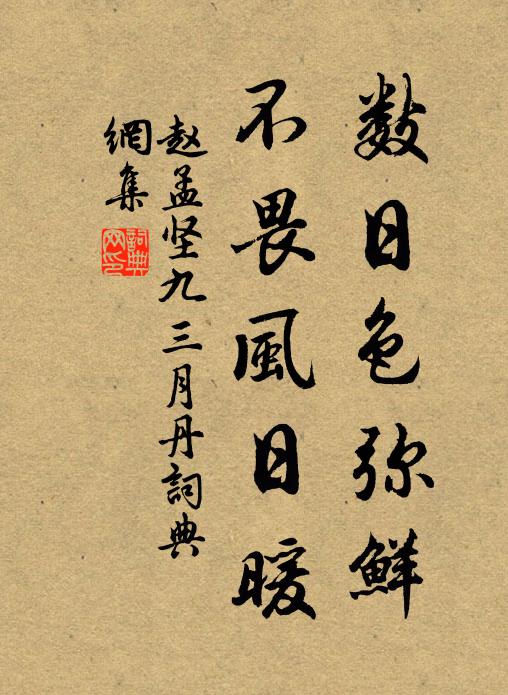 数日色弥鮮
不畏風日暖
赵孟坚九三月丹詞典
網集
詞典
网印